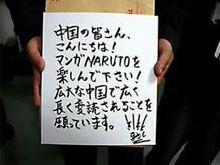 中国の皆さん、
こんにちは!
マンガNARUTOを
楽しんで下さい!
広大な中国で広く
長く愛読されることを
願っています。